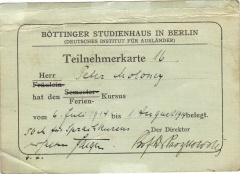 BÖTTINGER STUDIENHAUS IN BERLIN
(DEUTSCHES INSTITUT FÜR AUSLÄNDER)
Teilnehmerkarte 16
Herr
Fräulein
Peter Moloney
hat den
Semester-
Ferien-
Kursus
vom 6. Juli 1914 bis 1. August 1914 belegt.
Der Direktor